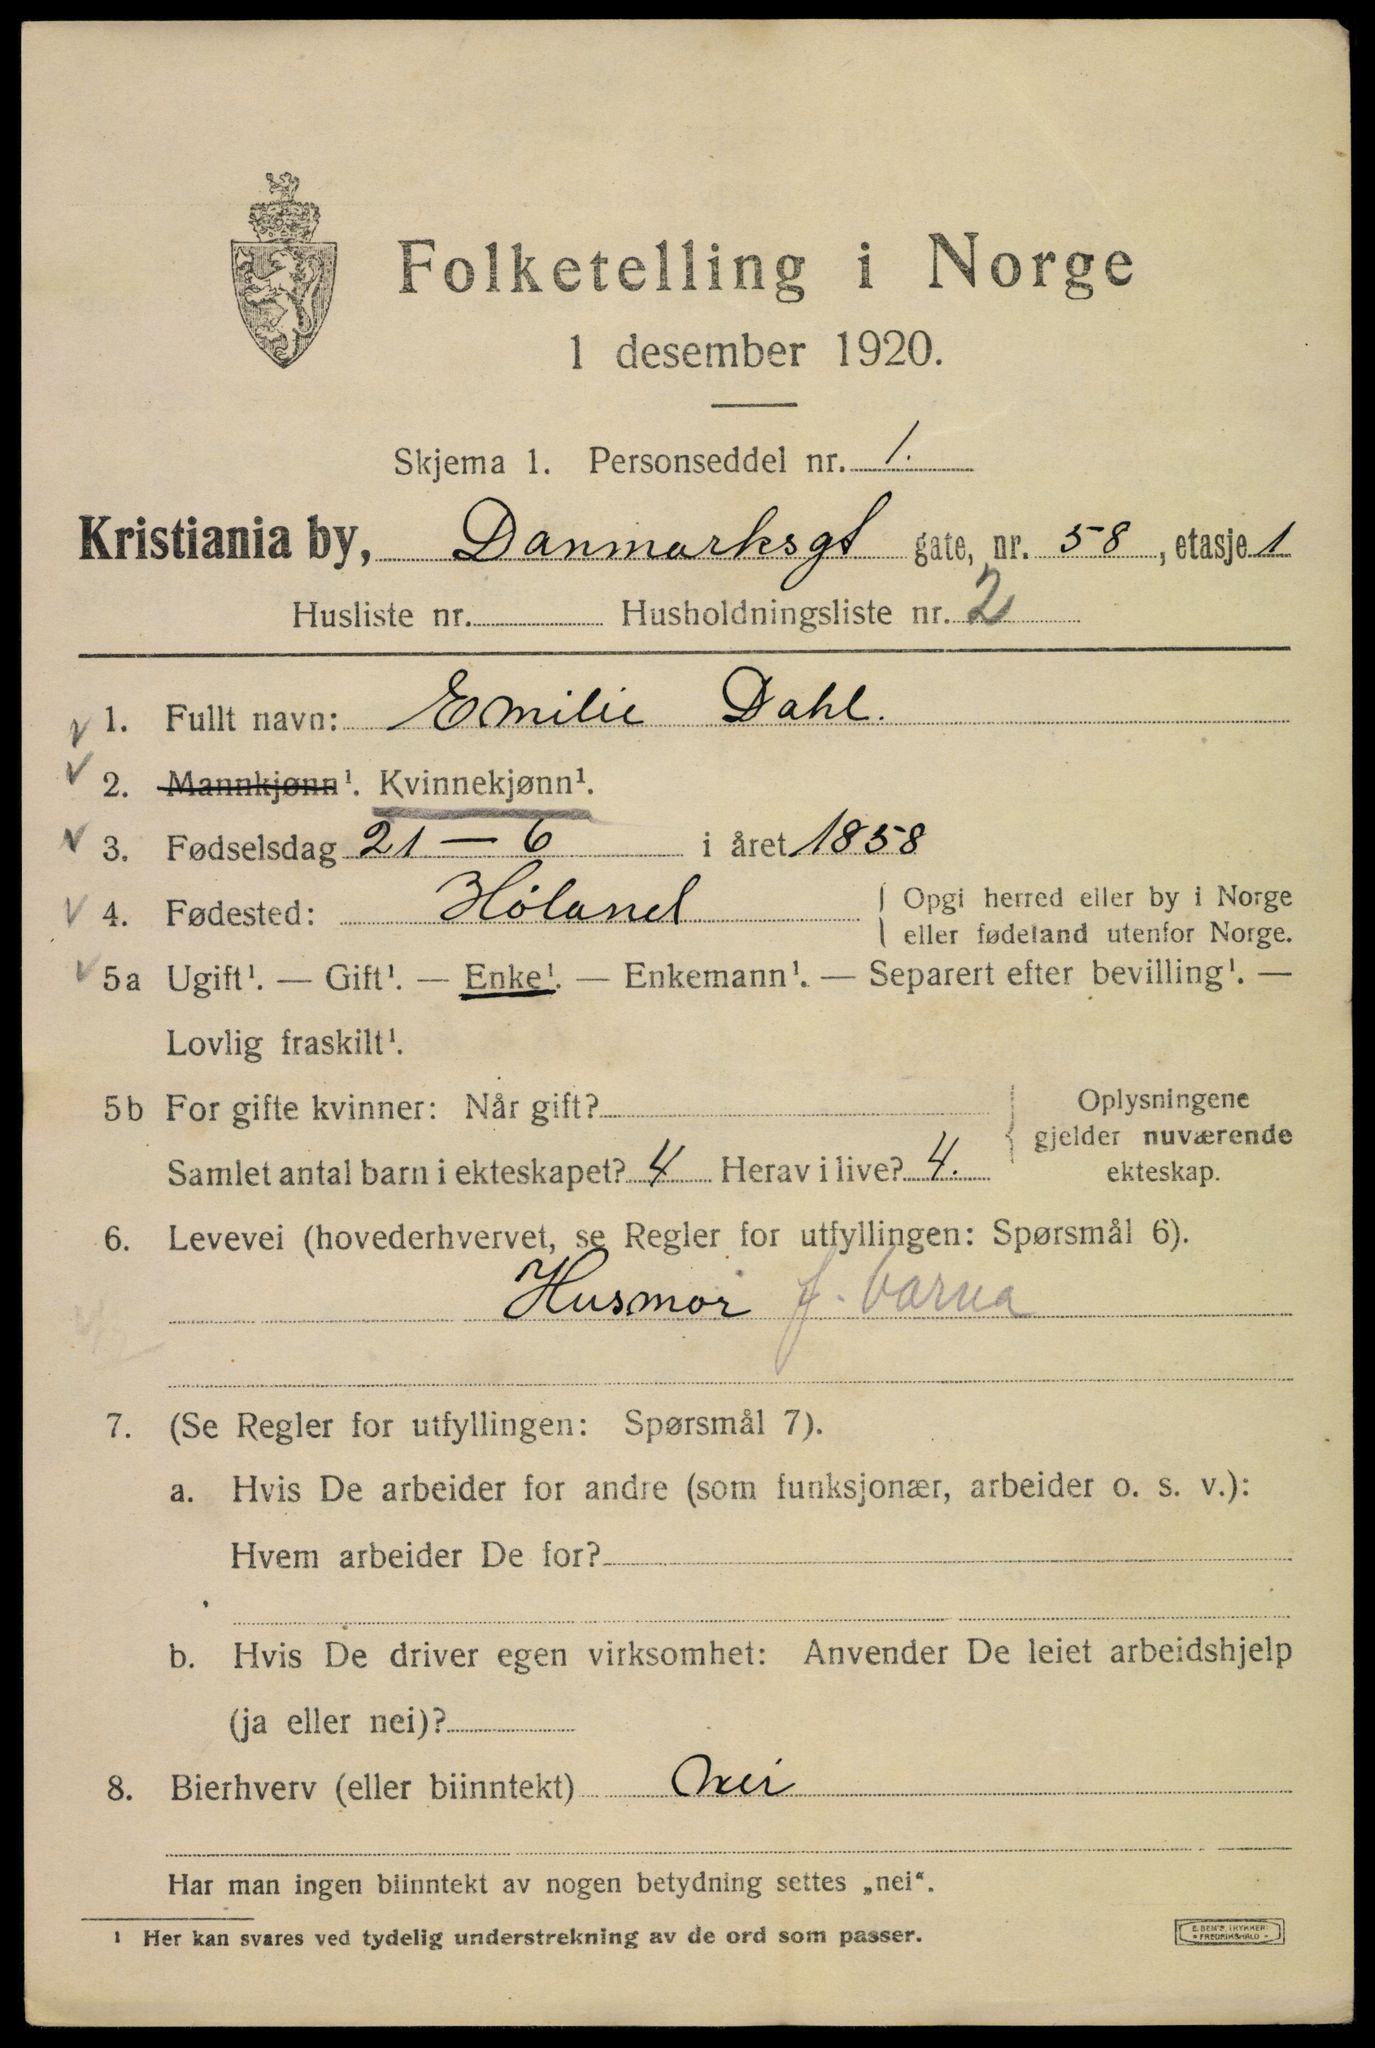 Folketelling i Norge
1 desember 1920.
Skjema 1. Personseddel nr. 1.
Kristiania by, Danmarksgt gate, nr. 58, etasje 1
Husliste nr. Husholdningsliste nr. 2
1. Fullt navn: Emilie Dahl.
2. Mannkjønn¹. Kvinnekjønn¹.
3. Fødselsdag 21 — 6 i året 1858
4. Fødested: Høland Opgi herred eller by i Norge
eller fødeland utenfor Norge.
5a Ugift¹. — Gift¹. — Enke¹. — Enkemann¹. — Separert efter bevilling¹. —
Lovlig fraskilt¹.
5b For gifte kvinner: Når gift?
Samlet antal barn i ekteskapet? 4 Herav i live? 4.
Oplysningene
gjelder nuværende
ekteskap.
6. Levevei (hovederhvervet, se Regler for utfyllingen: Spørsmål 6).
Husmor f. barna
7. (Se Regler for utfyllingen: Spørsmål 7).
a. Hvis De arbeider for andre (som funksjonær, arbeider o. s. v.):
Hvem arbeider De for?
b. Hvis De driver egen virksomhet: Anvender De leiet arbeidshjelp
(ja eller nei)?
8. Bierhverv (eller biinntekt) nei
Har man ingen biinntekt av nogen betydning settes „nei“.
¹ Her kan svares ved tydelig understrekning av de ord som passer.
E. SEM'S TRYKKERI
FREDRIKSHALD